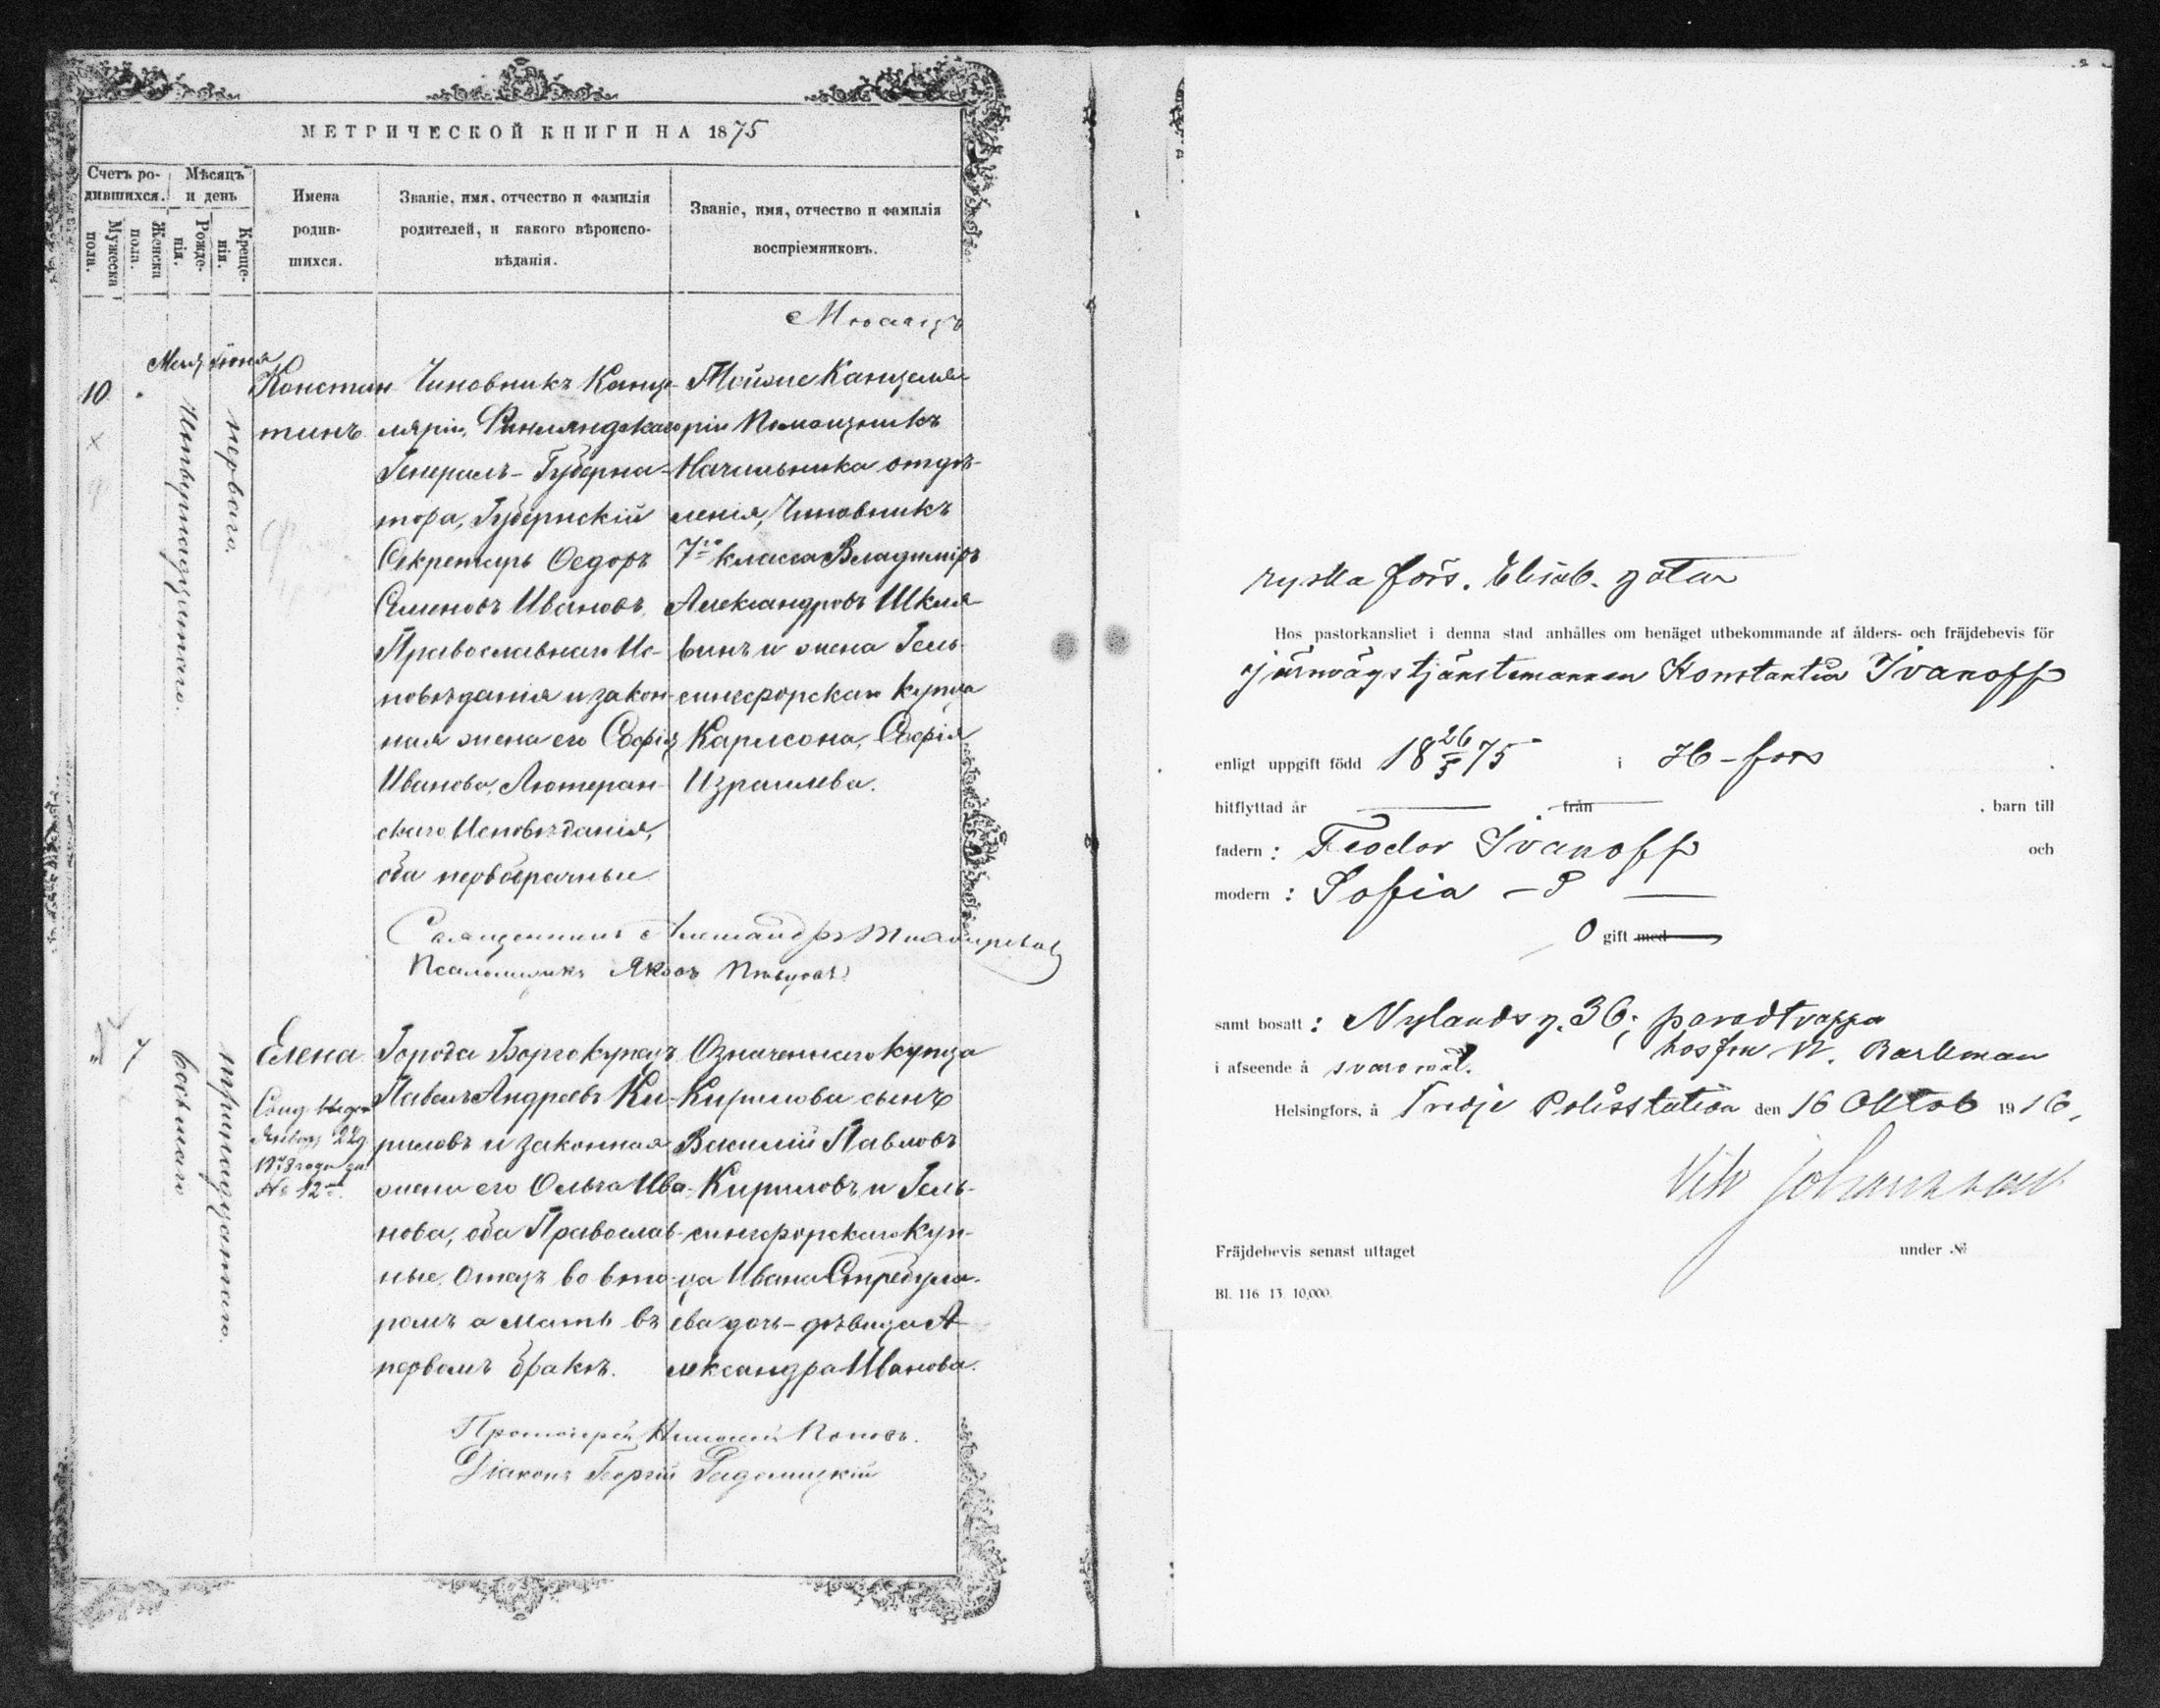 МЕТРИЧЕСКОЙ КНИГИ НА 1875
Счетъ ро-
дившихся.
Мѣсяцъ
и день
Мужеска
пола.
Женска
пола.
Рожде-
нія.
Креще-
нія.
Имена
родив-
шихся.
Званіе, имя, отчество и фамилія
родителей, и какого вѣроиспо-
вѣданія.
Званіе, имя, отчество и фамилія
воспріемниковъ.
Мая Іюня
10
четырнадцатаго.
перваго.
Констан
тинъ
Чиновникъ Канце-
ляріи, Финляндскаго
Генералъ-Губерна-
тора, Губернскій
Секретарь Ѳедоръ
Семеновъ Ивановъ,
Православнаго Ис-
повѣданія и закон-
ная жена его Софія
Иванова, Лютеран-
скаго Исповѣданія,
оба первобрачные
Тойже Канцеля-
ріи Помощникъ
Начальника отдѣ-
ленія, Чиновникъ
7го класса Владиміръ
Александровъ Шкля-
винъ и жена Гель-
сингфорскаго купца
Карлсона, Софія
Израилева.
Священникъ Александръ
Псаломщикъ Яковъ Пѣвцовъ
7
восьмаго
тринадцатаго.
Елена
1878 года за
№ 12
Города Борго купецъ
Павелъ Андреевъ Ки-
риловъ и законная
жена его Ольга Ива-
нова, оба Православ-
ные. Отецъ во вто-
ромъ а мать въ
первомъ бракѣ.
Означеннаго купца
Кирилова сынъ
Василій Павловъ
Кириловъ и Гель-
сингфорскаго куп-
ца Ивана Стребула-
ева дочь-дѣвица А-
лександра Иванова.
Протоіерей Николай Поповъ.
Діаконъ Георгій
ryska förs. Elisab. gatan
Hos pastorkansliet i denna stad anhålles om benäget utbekommande af ålders- och fräjdebevis för
järnvägstjänstemannen Konstantin Ivanoff
enligt uppgift född 18 26/5 75 i H-fors
hitflyttad år från , barn till
fadern: Feodor Ivanoff och
modern: Sofia
O gift med
samt bosatt: Nylandsg. 36; paradtrappa
hos fru W. Barkman
i afseende å svaromål.
Helsingfors, å Tredje Polisstation den 16 Oktob 1916,
Vik Johansson
Fräjdebevis senast uttaget under №
Bl. 116 13. 10,000.